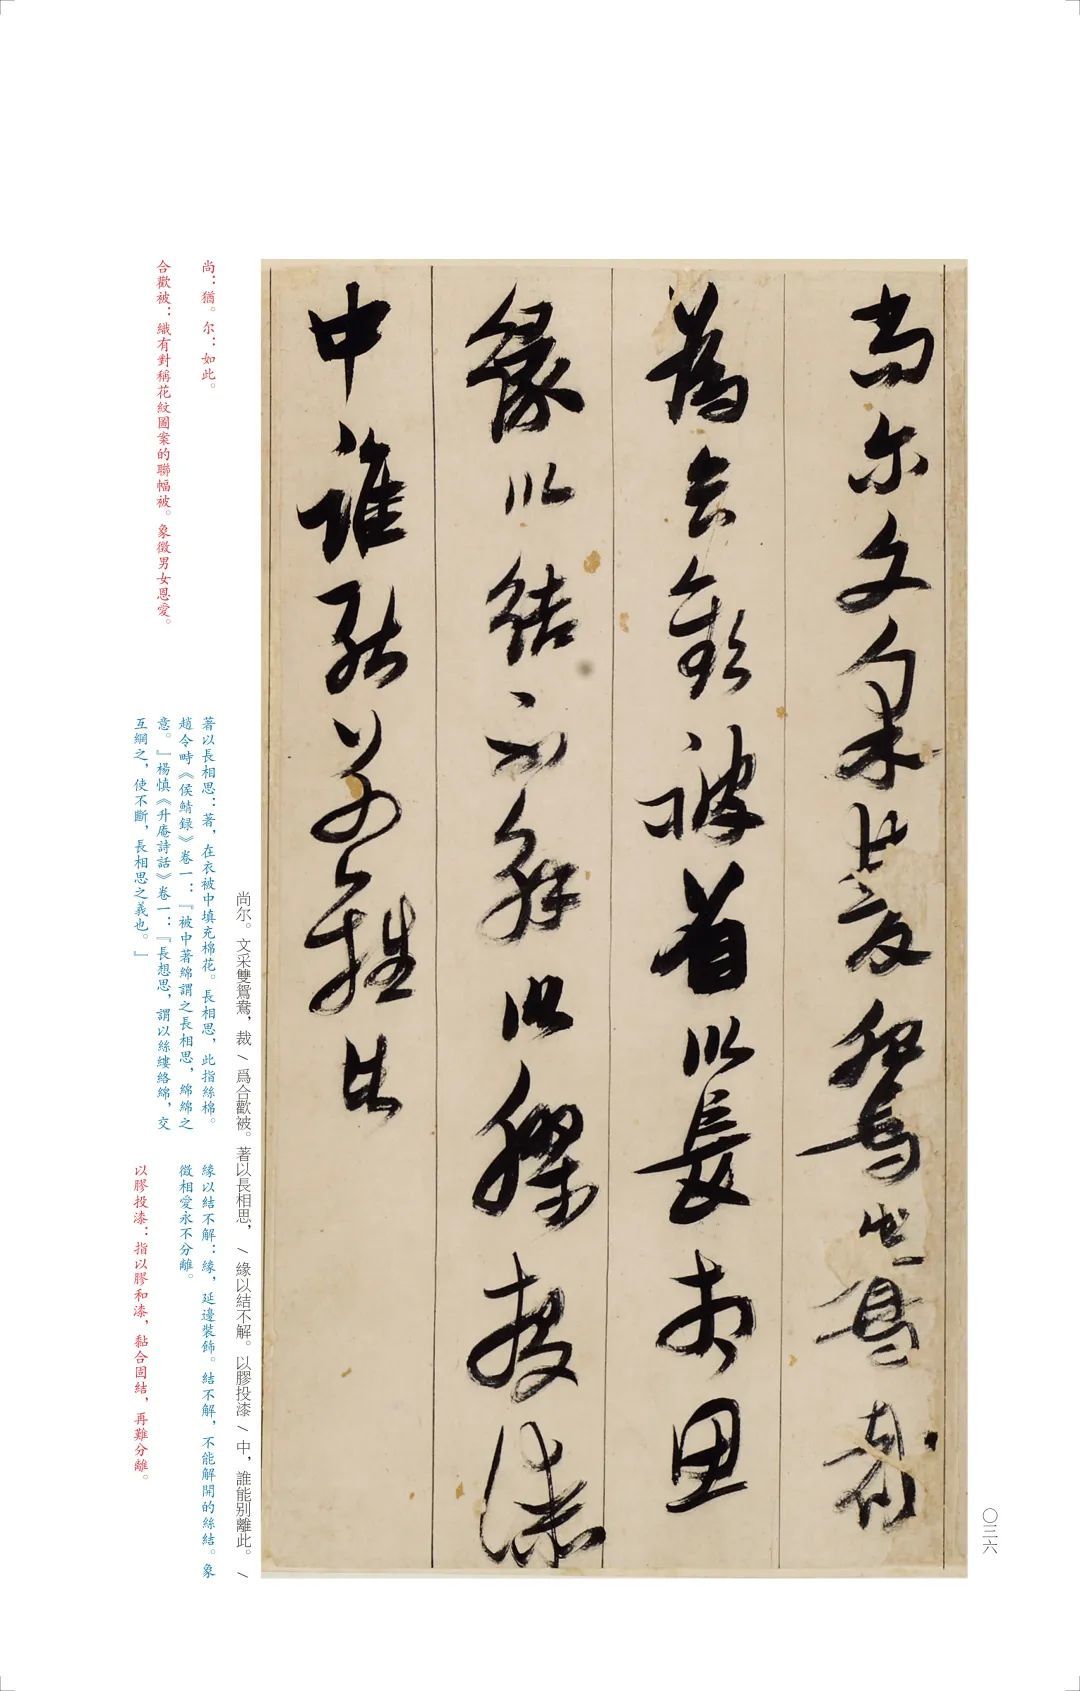 尚尔文采雙鴛鴦裁
爲合歡被着以長相思
緣以結不解以膠投漆
中誰能别離此
尚尔。文采雙鴛鴦，裁/爲合歡被。著以長相思，/緣以結不解。以膠投漆/中，誰能别離此。/
尚：猶。尔：如此。
合歡被：織有對稱花紋圖案的聯幅被。象徵男女恩愛。
著以長相思：著，在衣被中填充棉花。長相思，此指絲棉。
趙令畤《侯鯖録》卷一：『被中著綿謂之長相思，綿綿之
意。』楊慎《升庵詩話》卷一：『長想思，謂以絲縷絡綿，交
互綱之，使不斷，長相思之義也。』
緣以結不解：緣，延邊裝飾。結不解，不能解開的絲結。象
徵相愛永不分離。
以膠投漆：指以膠和漆，黏合固結，再難分離。
〇三六